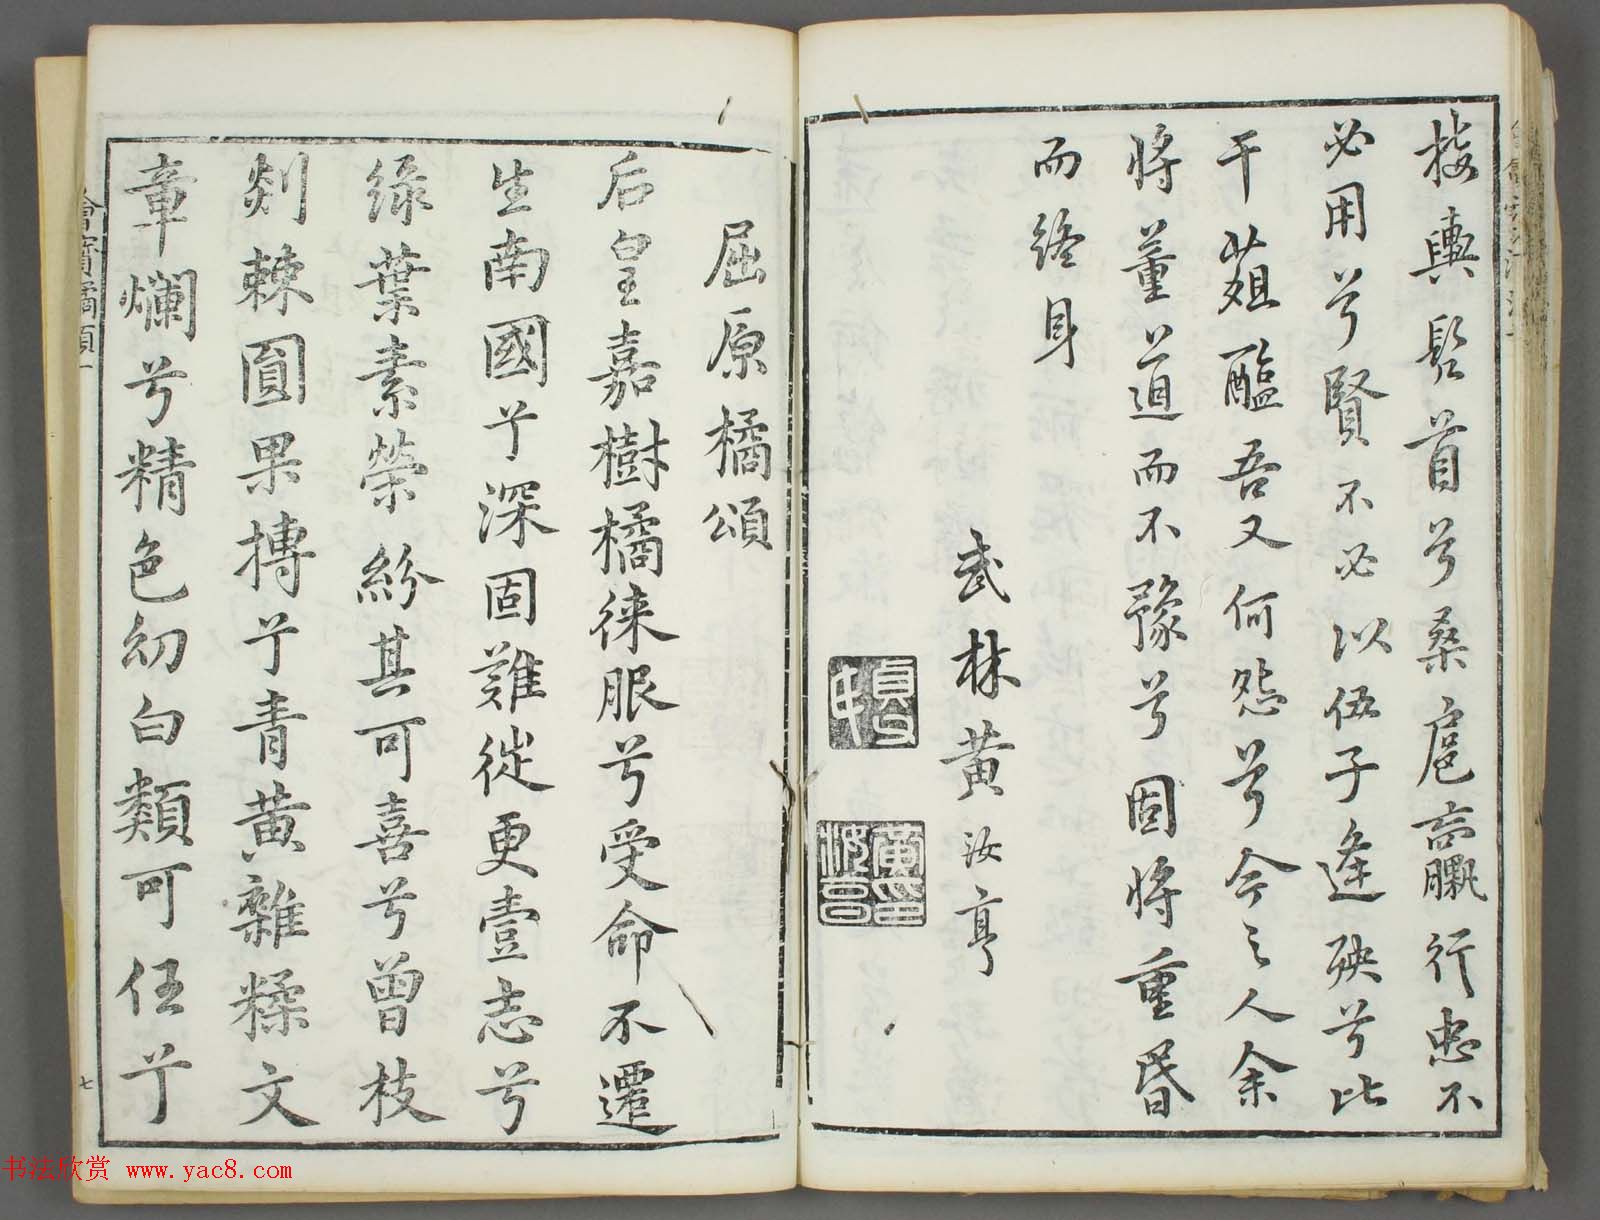 接輿髡首兮桑扈臝行忠不
必用兮賢不必以伍子逢殃兮比
干葅醢吾又何怨兮今之人余
將董道而不豫兮固將重昏
而終身
武林黃汝亨
黃印汝亨
屈原橘頌
后皇嘉樹橘徠服兮受命不遷
生南國兮深固難徙更壹志兮
綠葉素榮紛其可喜兮曾枝
剡棘圓果摶兮青黃雜糅文
章爛兮精色幻白類可任兮
七
书法欣赏 www.yac8.com